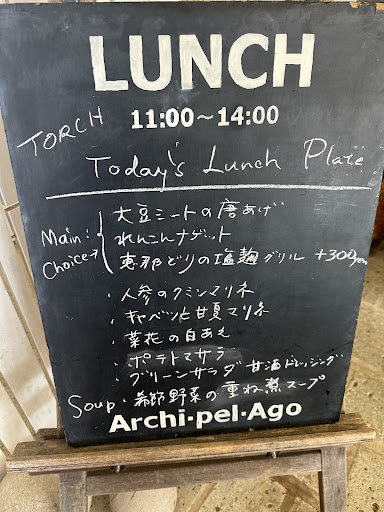 LUNCH
TORCH
11:00~14:00
Today's Lunch Plate
大豆ミートの唐あげ
Main: れんこんナゲット
Choice→ 恵那どりの塩麹グリル +300yen
・人参のクミンマリネ
・キャベツと甘夏マリネ
・菜花の白あえ
ポテトマサラ
・グリーンサラダ 甘酒ドレッシング
Soup・希節野菜の重ね煮スープ
Archi-pel-Ago